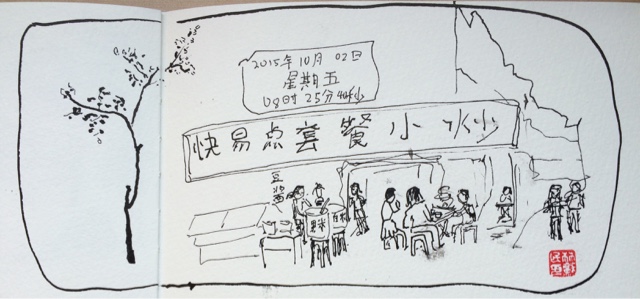 2015年10月02日
星期五
08时25分40秒
快易点套餐小炒